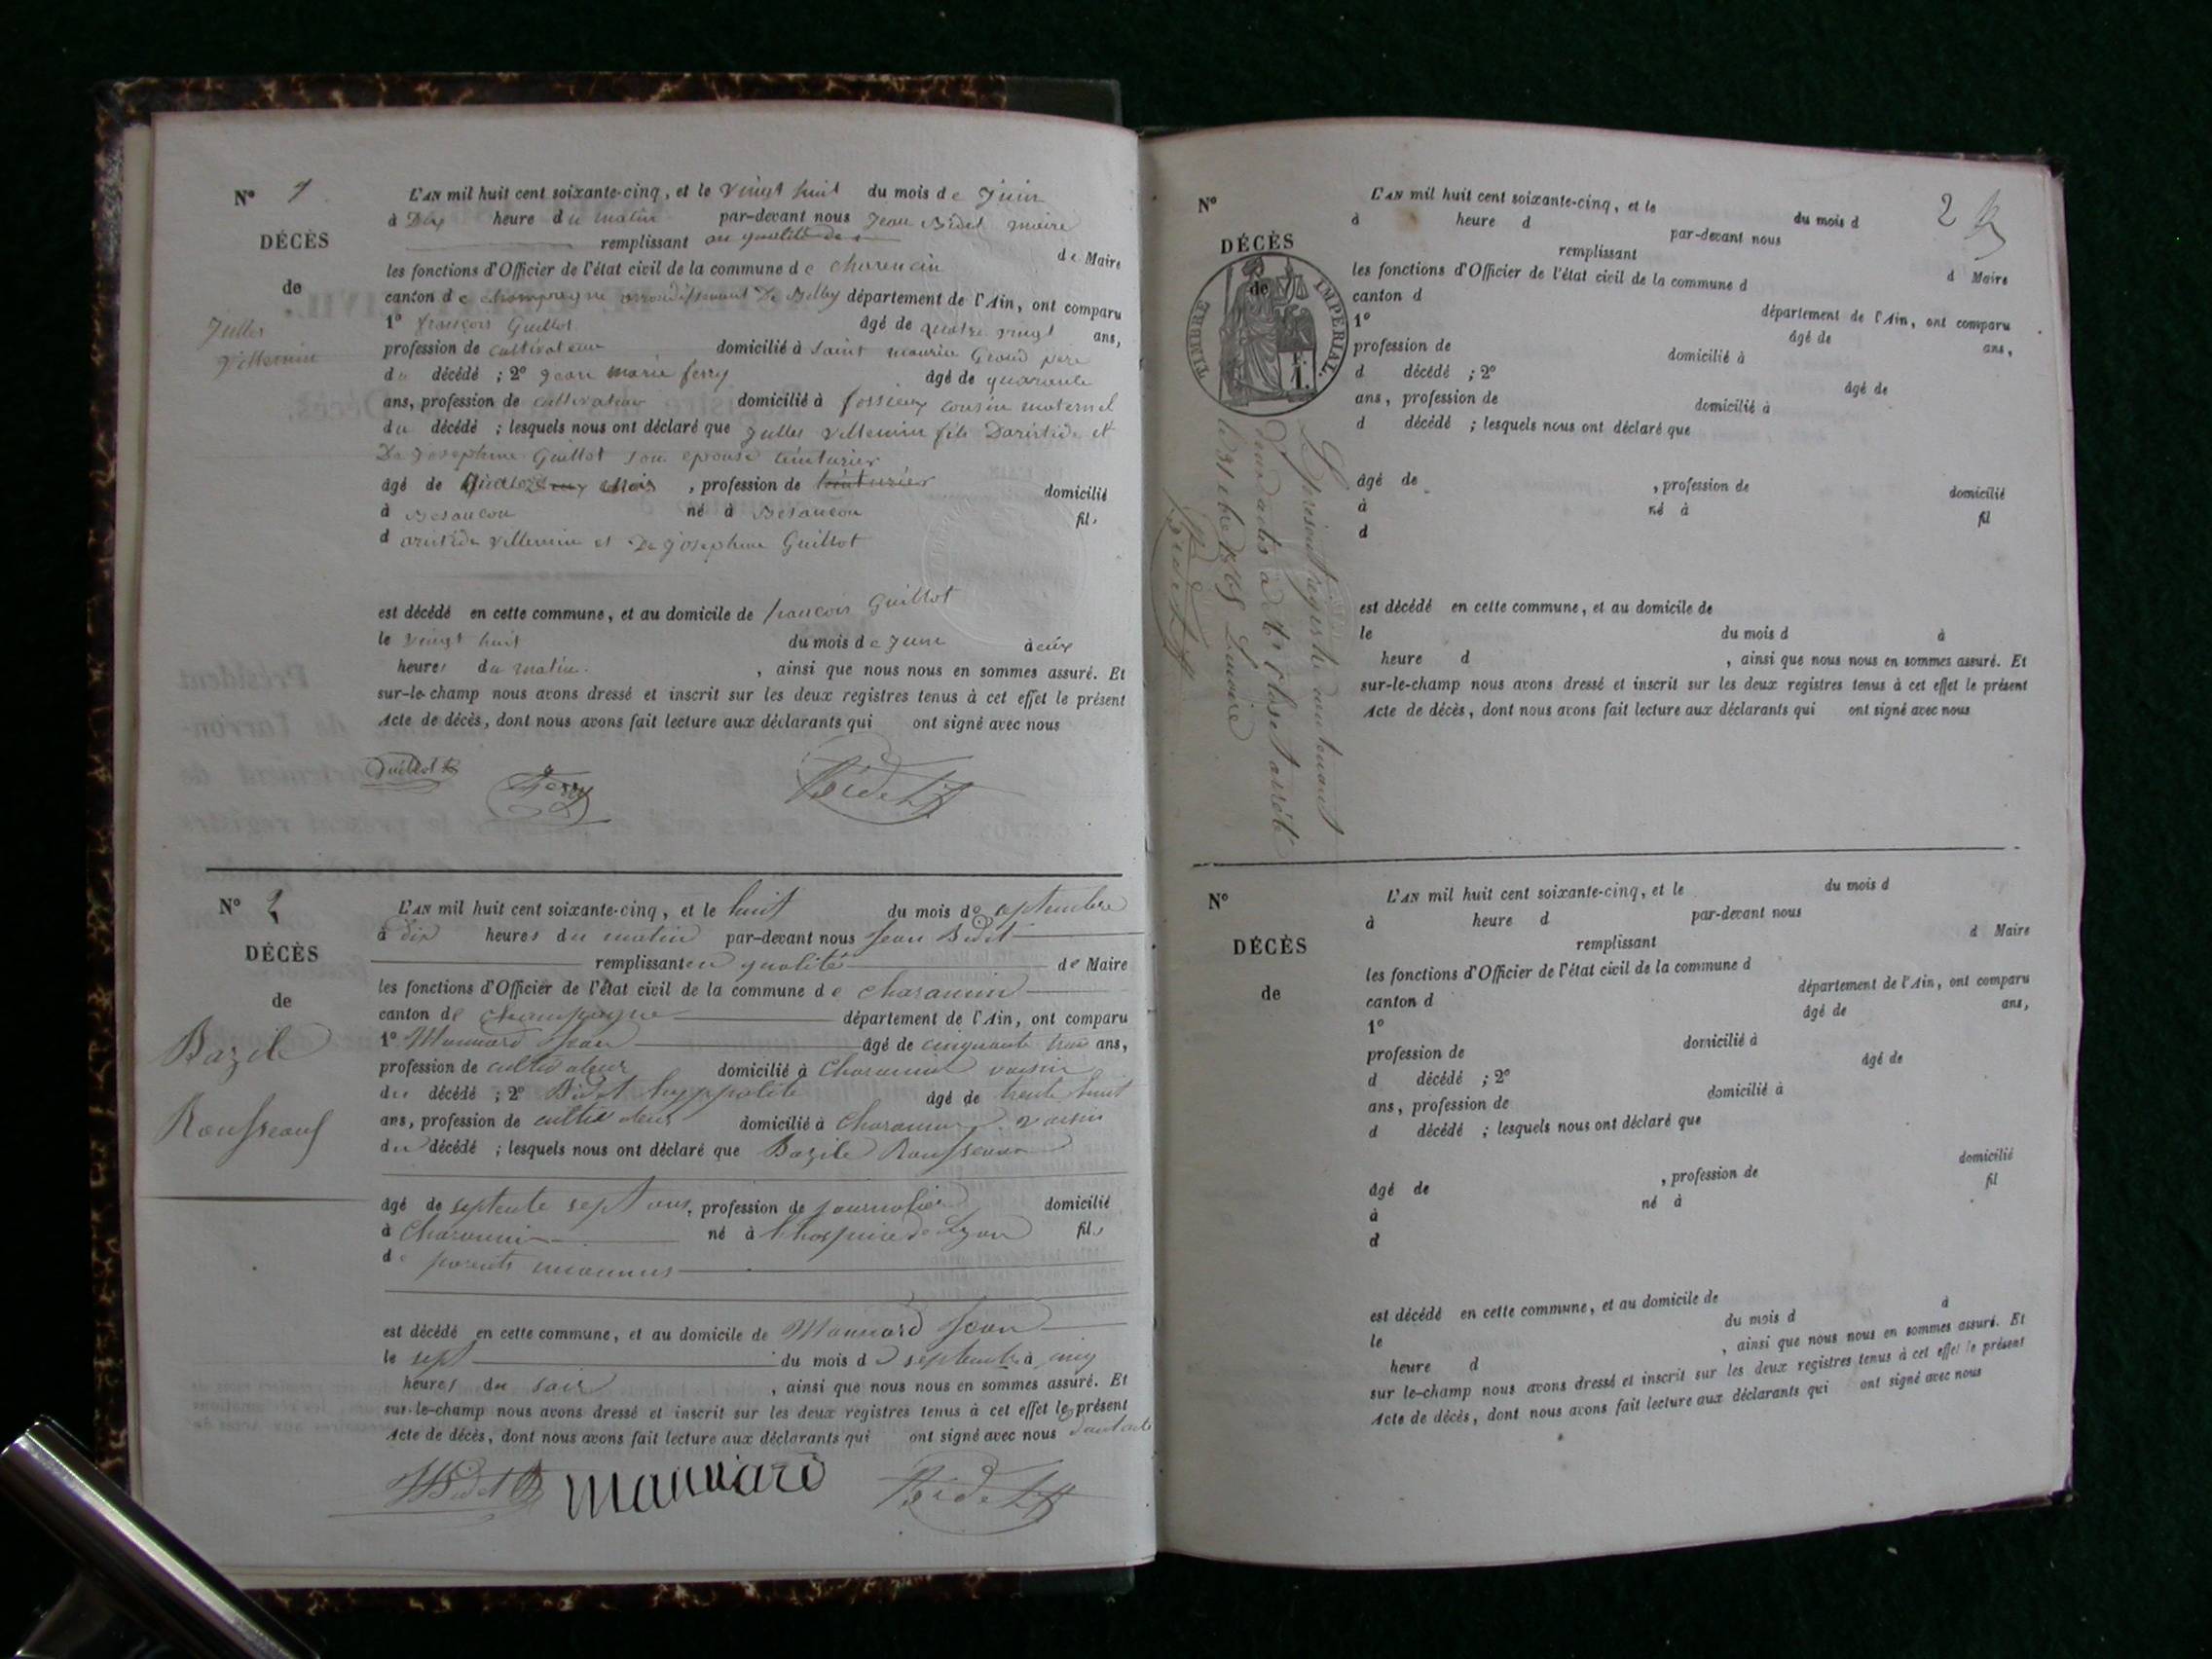 N° 1
DÉCÈS
de
Julles
Villemin
L'AN mil huit cent soixante-cinq, et le vingt huit du mois de Juin
à Dix heure du matin par-devant nous Jean Bidet maire
remplissant en qualité de
de Maire
les fonctions d'Officier de l'état civil de la commune de Charencin
canton de Champagne arrondissement De Belley département de l'Ain, ont comparu
1° françois Guillot âgé de quatre vingt ans,
profession de cultivateur domicilié à Saint maurice Grand père
du décédé ; 2° jean marie ferry âgé de quarante
ans, profession de cultivateur domicilié à fossieux cousin maternel
du décédé ; lesquels nous ont déclaré que Julles villemin fils Daristide et
De josephine Guillot son epouse teinturier
âgé de mois , profession de teinturier domicilié
à Besancon né à Besancon fils
d aristide villemin et De josephine Guillot
est décédé en cette commune, et au domicile de francois Guillot
le vingt huit du mois de June à
heures du matin. , ainsi que nous nous en sommes assuré. Et
sur-le-champ nous avons dressé et inscrit sur les deux registres tenus à cet effet le présent
Acte de décès, dont nous avons fait lecture aux déclarants qui ont signé avec nous
Guillot
Ferry
Bidet
N° 2
DÉCÈS
de
Bazile
Rousseau
L'AN mil huit cent soixante-cinq, et le huit du mois de septembre
à dix heures du matin par-devant nous Jean Bidet
remplissant en qualité de Maire
les fonctions d'Officier de l'état civil de la commune de Charancin
canton de Champagne département de l'Ain, ont comparu
1° Mannard Jean âgé de cinquante trois ans,
profession de cultivateur domicilié à Charancin voisin
du décédé ; 2° Bidet hyppolite âgé de trente huit
ans, profession de cultivateur domicilié à Charancin voisin
du décédé ; lesquels nous ont déclaré que Bazile Rousseau
âgé de septente sept ans, profession de journalier domicilié
à Charancin né à l'hospice de Lyon fils
de parents inconnus
est décédé en cette commune, et au domicile de Mannard Jean
le sept du mois de septembre à cinq
heures du soir , ainsi que nous nous en sommes assuré. Et
sur-le-champ nous avons dressé et inscrit sur les deux registres tenus à cet effet le présent
Acte de décès, dont nous avons fait lecture aux déclarants qui ont signé avec nous
HBidet
Mannard
Bidet
2
N°
DÉCÈS
de
TIMBRE IMPERIAL.
1.
L'AN mil huit cent soixante-cinq, et le du mois d
à heure d par-devant nous
remplissant
d Maire
les fonctions d'Officier de l'état civil de la commune d
canton d département de l'Ain, ont comparu
1° âgé de ans,
profession de domicilié à
d décédé ; 2° âgé de
ans, profession de domicilié à
d décédé ; lesquels nous ont déclaré que
âgé de , profession de domicilié
à né à fil
d
est décédé en cette commune, et au domicile de
le du mois d à
heure d , ainsi que nous nous en sommes assuré. Et
sur-le-champ nous avons dressé et inscrit sur les deux registres tenus à cet effet le présent
Acte de décès, dont nous avons fait lecture aux déclarants qui ont signé avec nous
Le présent registre contenant
deux actes a été clos et arrêté
le 31 1865 Le maire
Bidet
N°
DÉCÈS
de
L'AN mil huit cent soixante-cinq, et le du mois d
à heure d par-devant nous
remplissant d Maire
les fonctions d'Officier de l'état civil de la commune d
canton d département de l'Ain, ont comparu
1° âgé de ans,
profession de domicilié à
d décédé ; 2° âgé de
ans, profession de domicilié à
d décédé ; lesquels nous ont déclaré que
âgé de , profession de domicilié
à né à fil
d
est décédé en cette commune, et au domicile de
le du mois d à
heure d , ainsi que nous nous en sommes assuré. Et
sur le-champ nous avons dressé et inscrit sur les deux registres tenus à cet effet le présent
Acte de décès, dont nous avons fait lecture aux déclarants qui ont signé avec nous